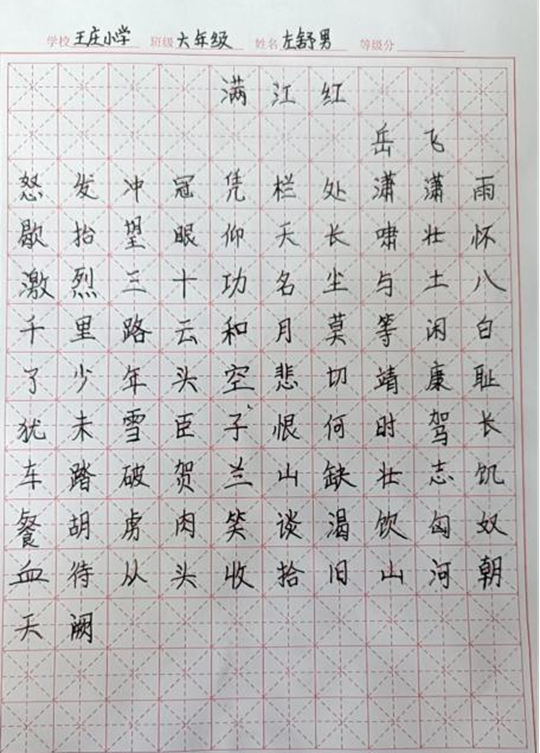 学校 王庄小学 班级 六年级 姓名 左舒男 等级分
满江红
岳飞
怒发冲冠凭栏处潇潇雨
歇抬望眼仰天长啸壮怀
激烈三十功名尘与土八
千里路云和月莫等闲白
了少年头空悲切靖康耻
犹未雪臣子恨何时驾长
车踏破贺兰山缺壮志饥
餐胡虏肉笑谈渴饮匈奴
血待从头收拾旧山河朝
天阙